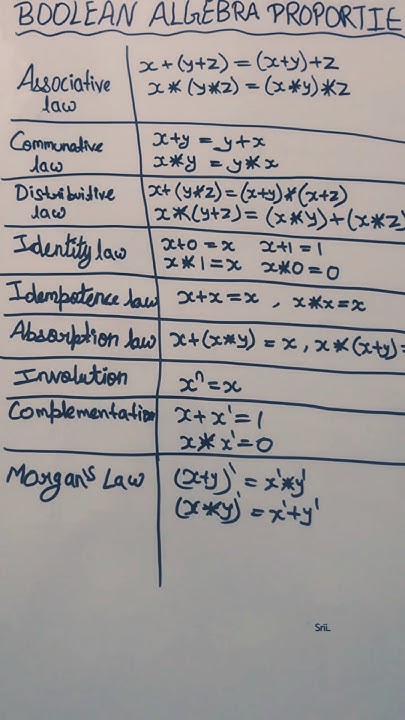 BOOLEAN ALGEBRA PROPORTIE
Associative law
x+(y+z)=(x+y)+z
x*(y*z)=(x*y)*z
Communative law
x+y=y+x
x*y=y*x
Distributive law
x+(y*z)=(x+y)*(x+z)
x*(y+z)=(x*y)+(x*z)
Identity law
x+0=x x+1=1
x*1=x x*0=0
Idempotence law
x+x=x , x*x=x
Absorption law
x+(x*y)=x, x*(x+y)=
Involution
x^n=x
Complementation
x+x'=1
x*x'=0
Morgan's Law
(x+y)'=x'*y'
(x*y)'=x'+y'
SriL